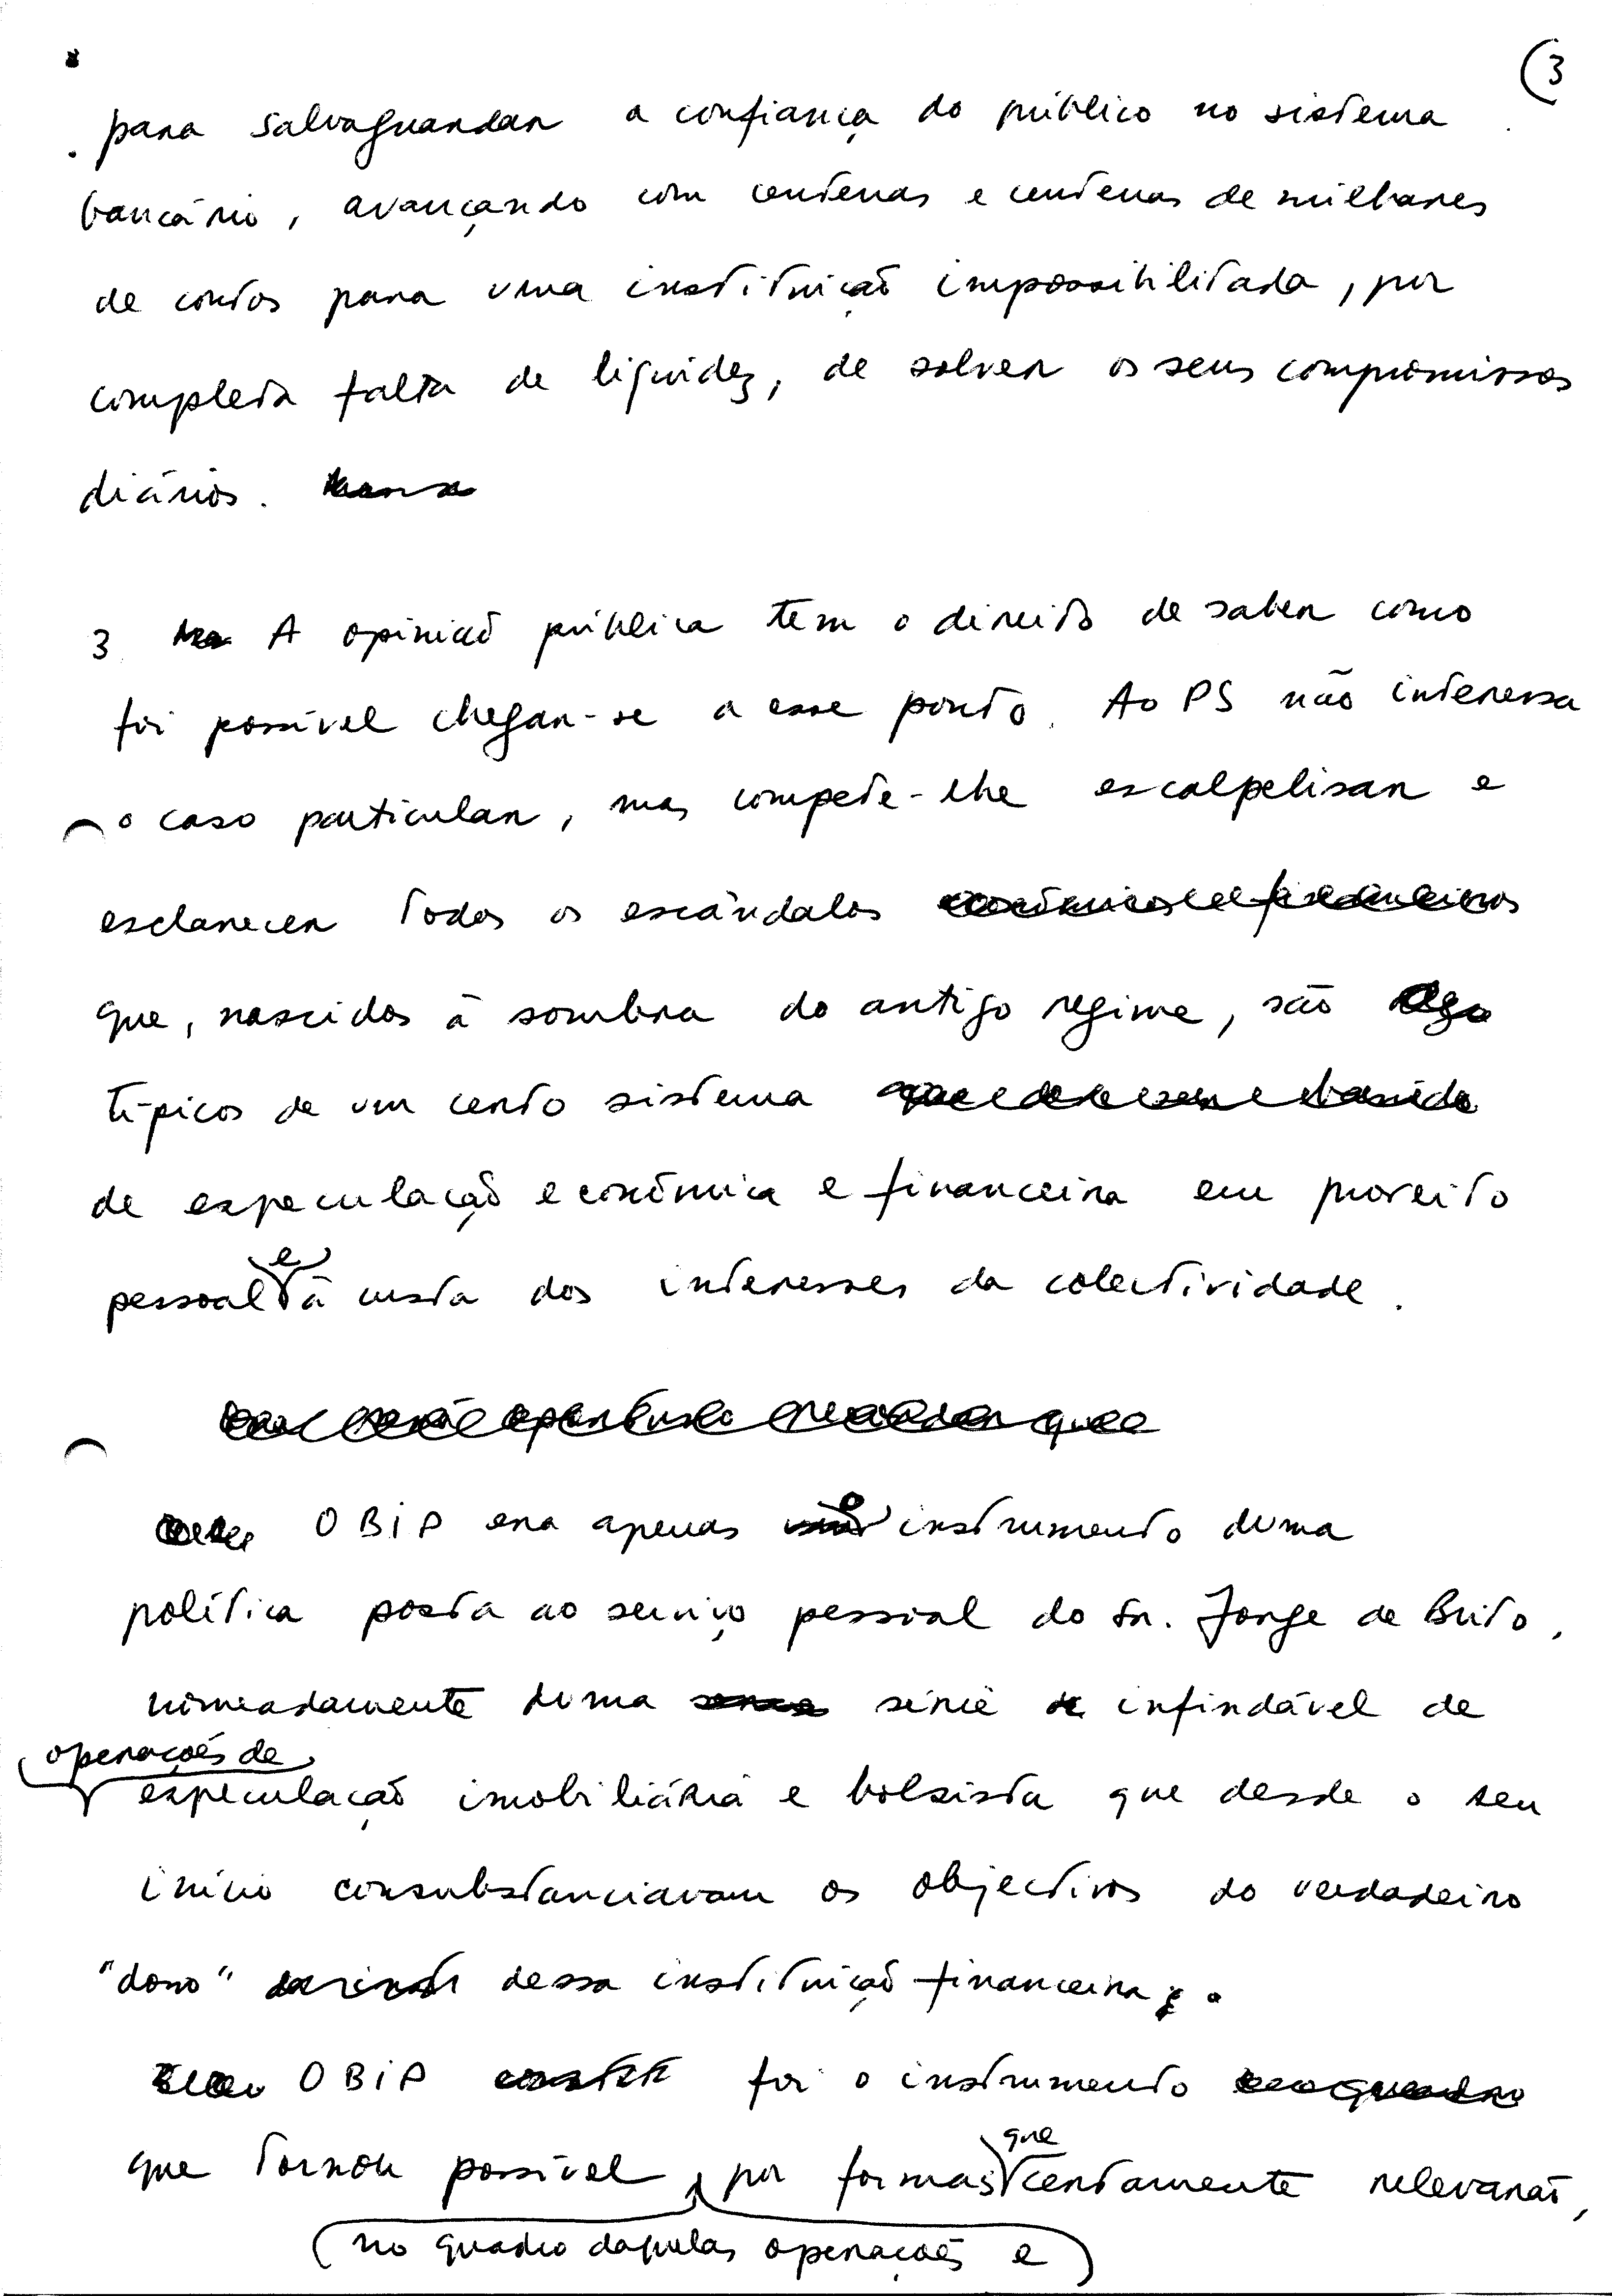 (3
para salvaguardar a confiança do público no sistema
bancário, avançando com centenas e centenas de milhares
de contos para uma instituição impossibilitada, por
completa falta de liquidez, de solver os seus compromissos
diários.
3. A opinião pública tem o direito de saber como
foi possível chegar-se a esse ponto. Ao PS não interessa
o caso particular, mas compete-lhe escalpelisar e
esclarecer todos os escândalos
que, nascidos à sombra do antigo regime, são
típicos de um certo sistema
de especulação económica e financeira em proveito
pessoal e à custa dos interesses da colectividade.
O BIP era apenas o instrumento duma
política posta ao serviço pessoal do Sr. Jorge de Brito,
nomeadamente duma série infindável de
operações de
especulação imobiliária e bolsista que desde o seu
início consubstanciavam os objectivos do verdadeiro
"dono" dessa instituição financeira.
O BIP foi o instrumento
que
que tornou possível, por formas certamente relevarão,
no quadro daquelas operações e